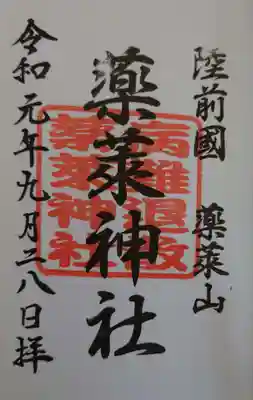 陸前國 薬萊山
薬萊神社
令和元年九月二八日拝